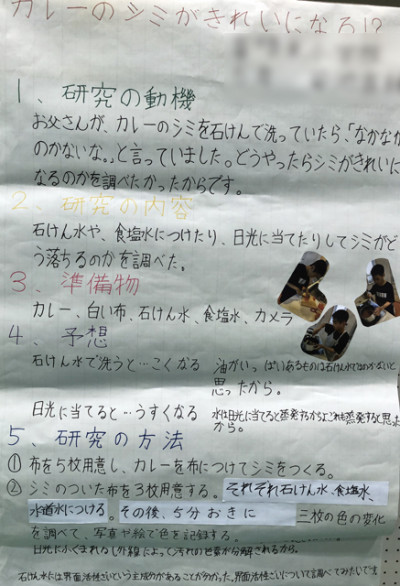 カレーのシミがきれいになる!?
1、研究の動機
お父さんが、カレーのシミを石けんで洗っていたら、「なかなか
のかないな。」と言っていました。どうやったらシミがきれいに
なるのかを調べたかったからです。
2、研究の内容
石けん水や、食塩水につけたり、日光に当てたりしてシミがど
う落ちるのかを調べた。
3、準備物
カレー、白い布、石けん水、食塩水、カメラ
4、予想
石けん水で洗うと…こくなる 油がいっぱいあるものは石けん水ではのかないと
思ったから。
日光に当てると…うすくなる 水は日光に当てると蒸発するからよごれも蒸発すると思った
から。
5、研究の方法
①布を5枚用意し、カレーを布につけてシミをつくる。
②シミのついた布を3枚用意する。それぞれ石けん水、食塩水、
水道水につける。その後、5分おきに 三枚の色の変化
を調べて、写真や絵で色を記録する。
日光にふくまれるし外線によって汚れの色素が分解されるから。
石けん水には界面活性ざいという主成分があることが分かった。界面活性ざいについて調べてみたいです